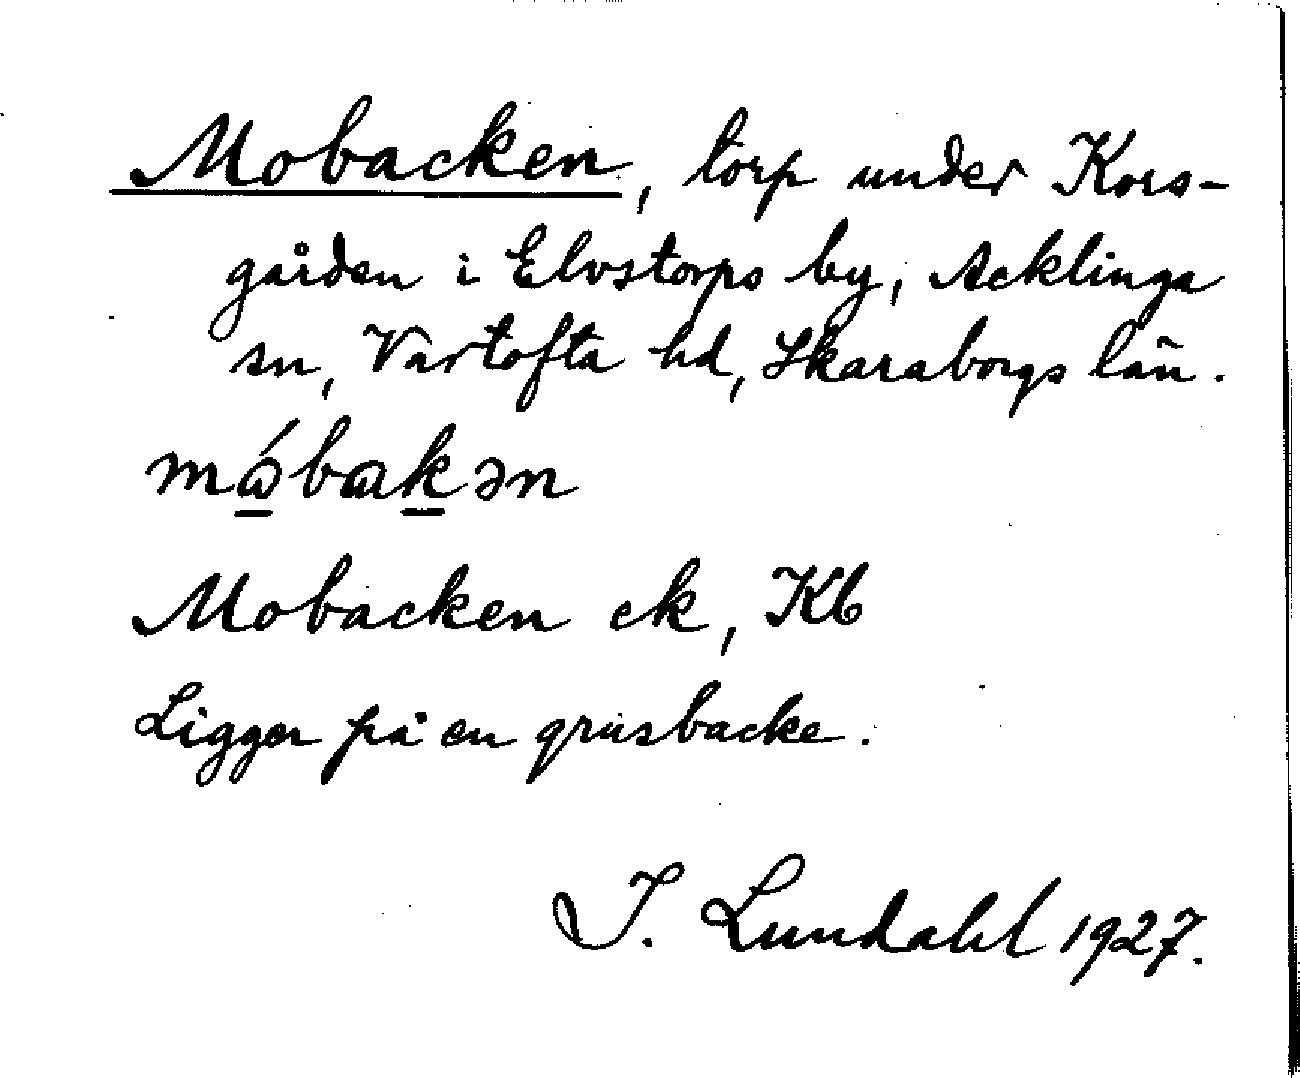 Mobacken, torp under Kors-
gården i Elvstorps by, Acklinga
sn, Vartofta hd, Skaraborgs län.
mώbɑkən
Mobacken ek, Kb
Ligger på en grusbacke.
I. Lundahl 1927.